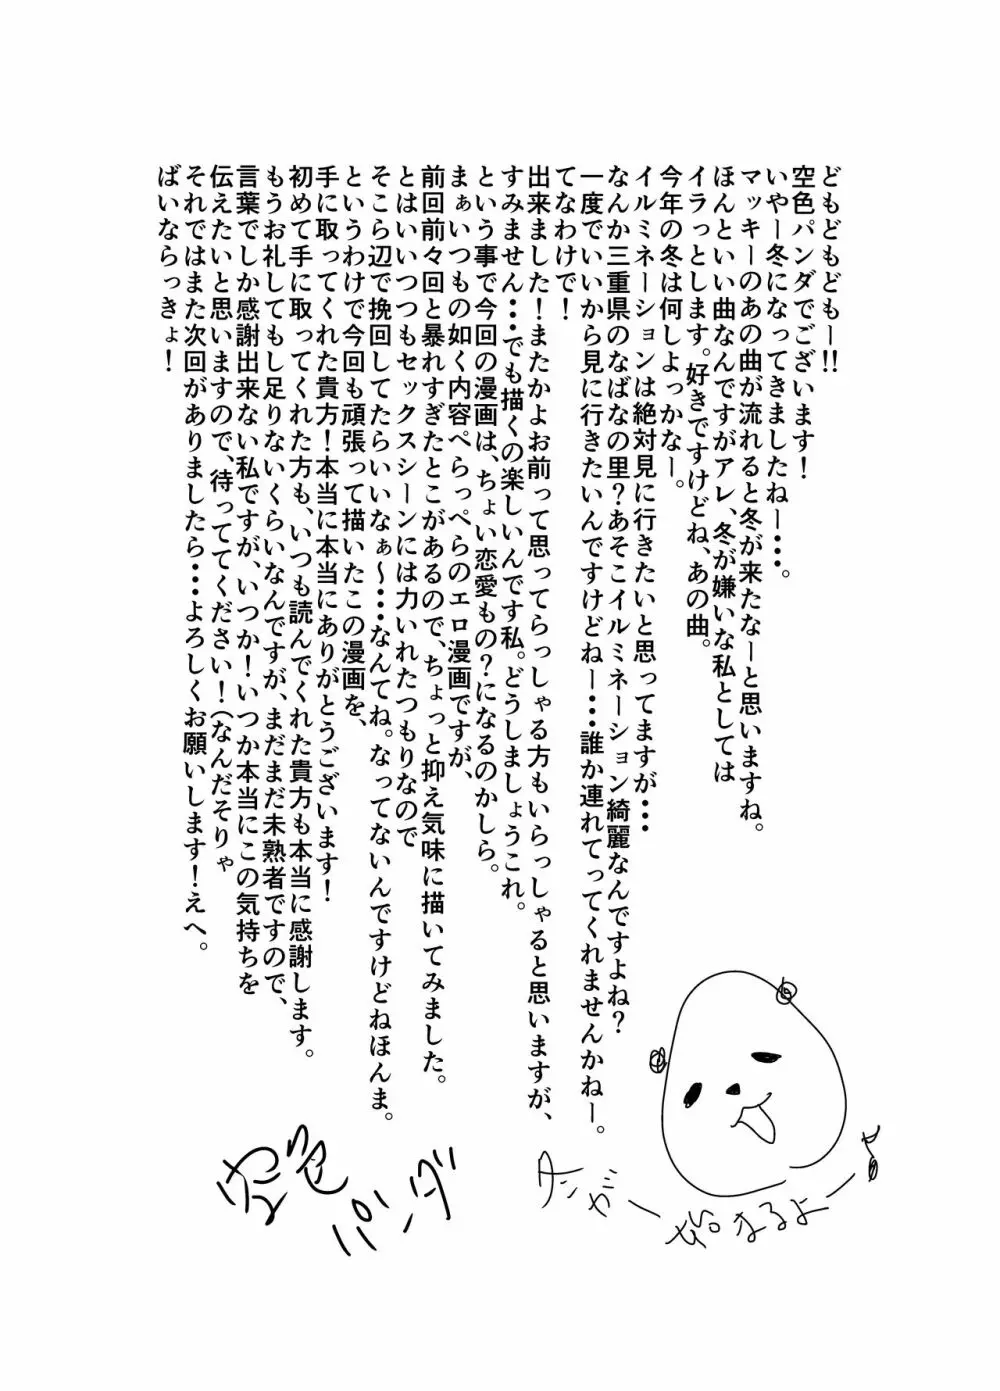 どもどもどもー!!
空色パンダでございます!
いやー冬になってきましたねー・・・。
マッキーのあの曲が流れると冬が来たなーと思いますね。
ほんといい曲なんですがアレ、冬が嫌いな私としては
イラっとします。好きですけどね、あの曲。
今年の冬は何しよっかなー。
イルミネーションは絶対見に行きたいと思ってますが・・・
なんか三重県のなばなの里?あそこイルミネーション綺麗なんですよね?
一度でいいから見に行きたいんですけどねー・・・誰か連れてってくれませんかねー。
てなわけで!
出来ました!またかよお前って思ってらっしゃる方もいらっしゃると思いますが、
すみません・・・でも描くの楽しいんです私。どうしましょうこれ。
という事で今回の漫画は、ちょい恋愛もの?になるのかしら。
まぁいつもの如く内容ぺらっぺらのエロ漫画ですが、
前回前々回と暴れすぎたとこがあるので、ちょっと抑え気味に描いてみました。
とはいいつつもセックスシーンには力いれたつもりなので
そこら辺で挽回してたらいいなぁ～・・・なんてね。なってないんですけどねほんま。
というわけで今回も頑張って描いたこの漫画を、
手に取ってくれた貴方!本当に本当にありがとうございます!
初めて手に取ってくれた方も、いつも読んでくれた貴方も本当に感謝します。
もうお礼してもし足りないくらいなんですが、まだまだ未熟者ですので、
言葉でしか感謝出来ない私ですが、いつか!いつか本当にこの気持ちを
伝えたいと思いますので、待っててください!(なんだそりゃ
それではまた次回がありましたら・・・よろしくお願いします!えへ。
ばいならっきょ!
冬がー始まるよー♪
空色パンダ